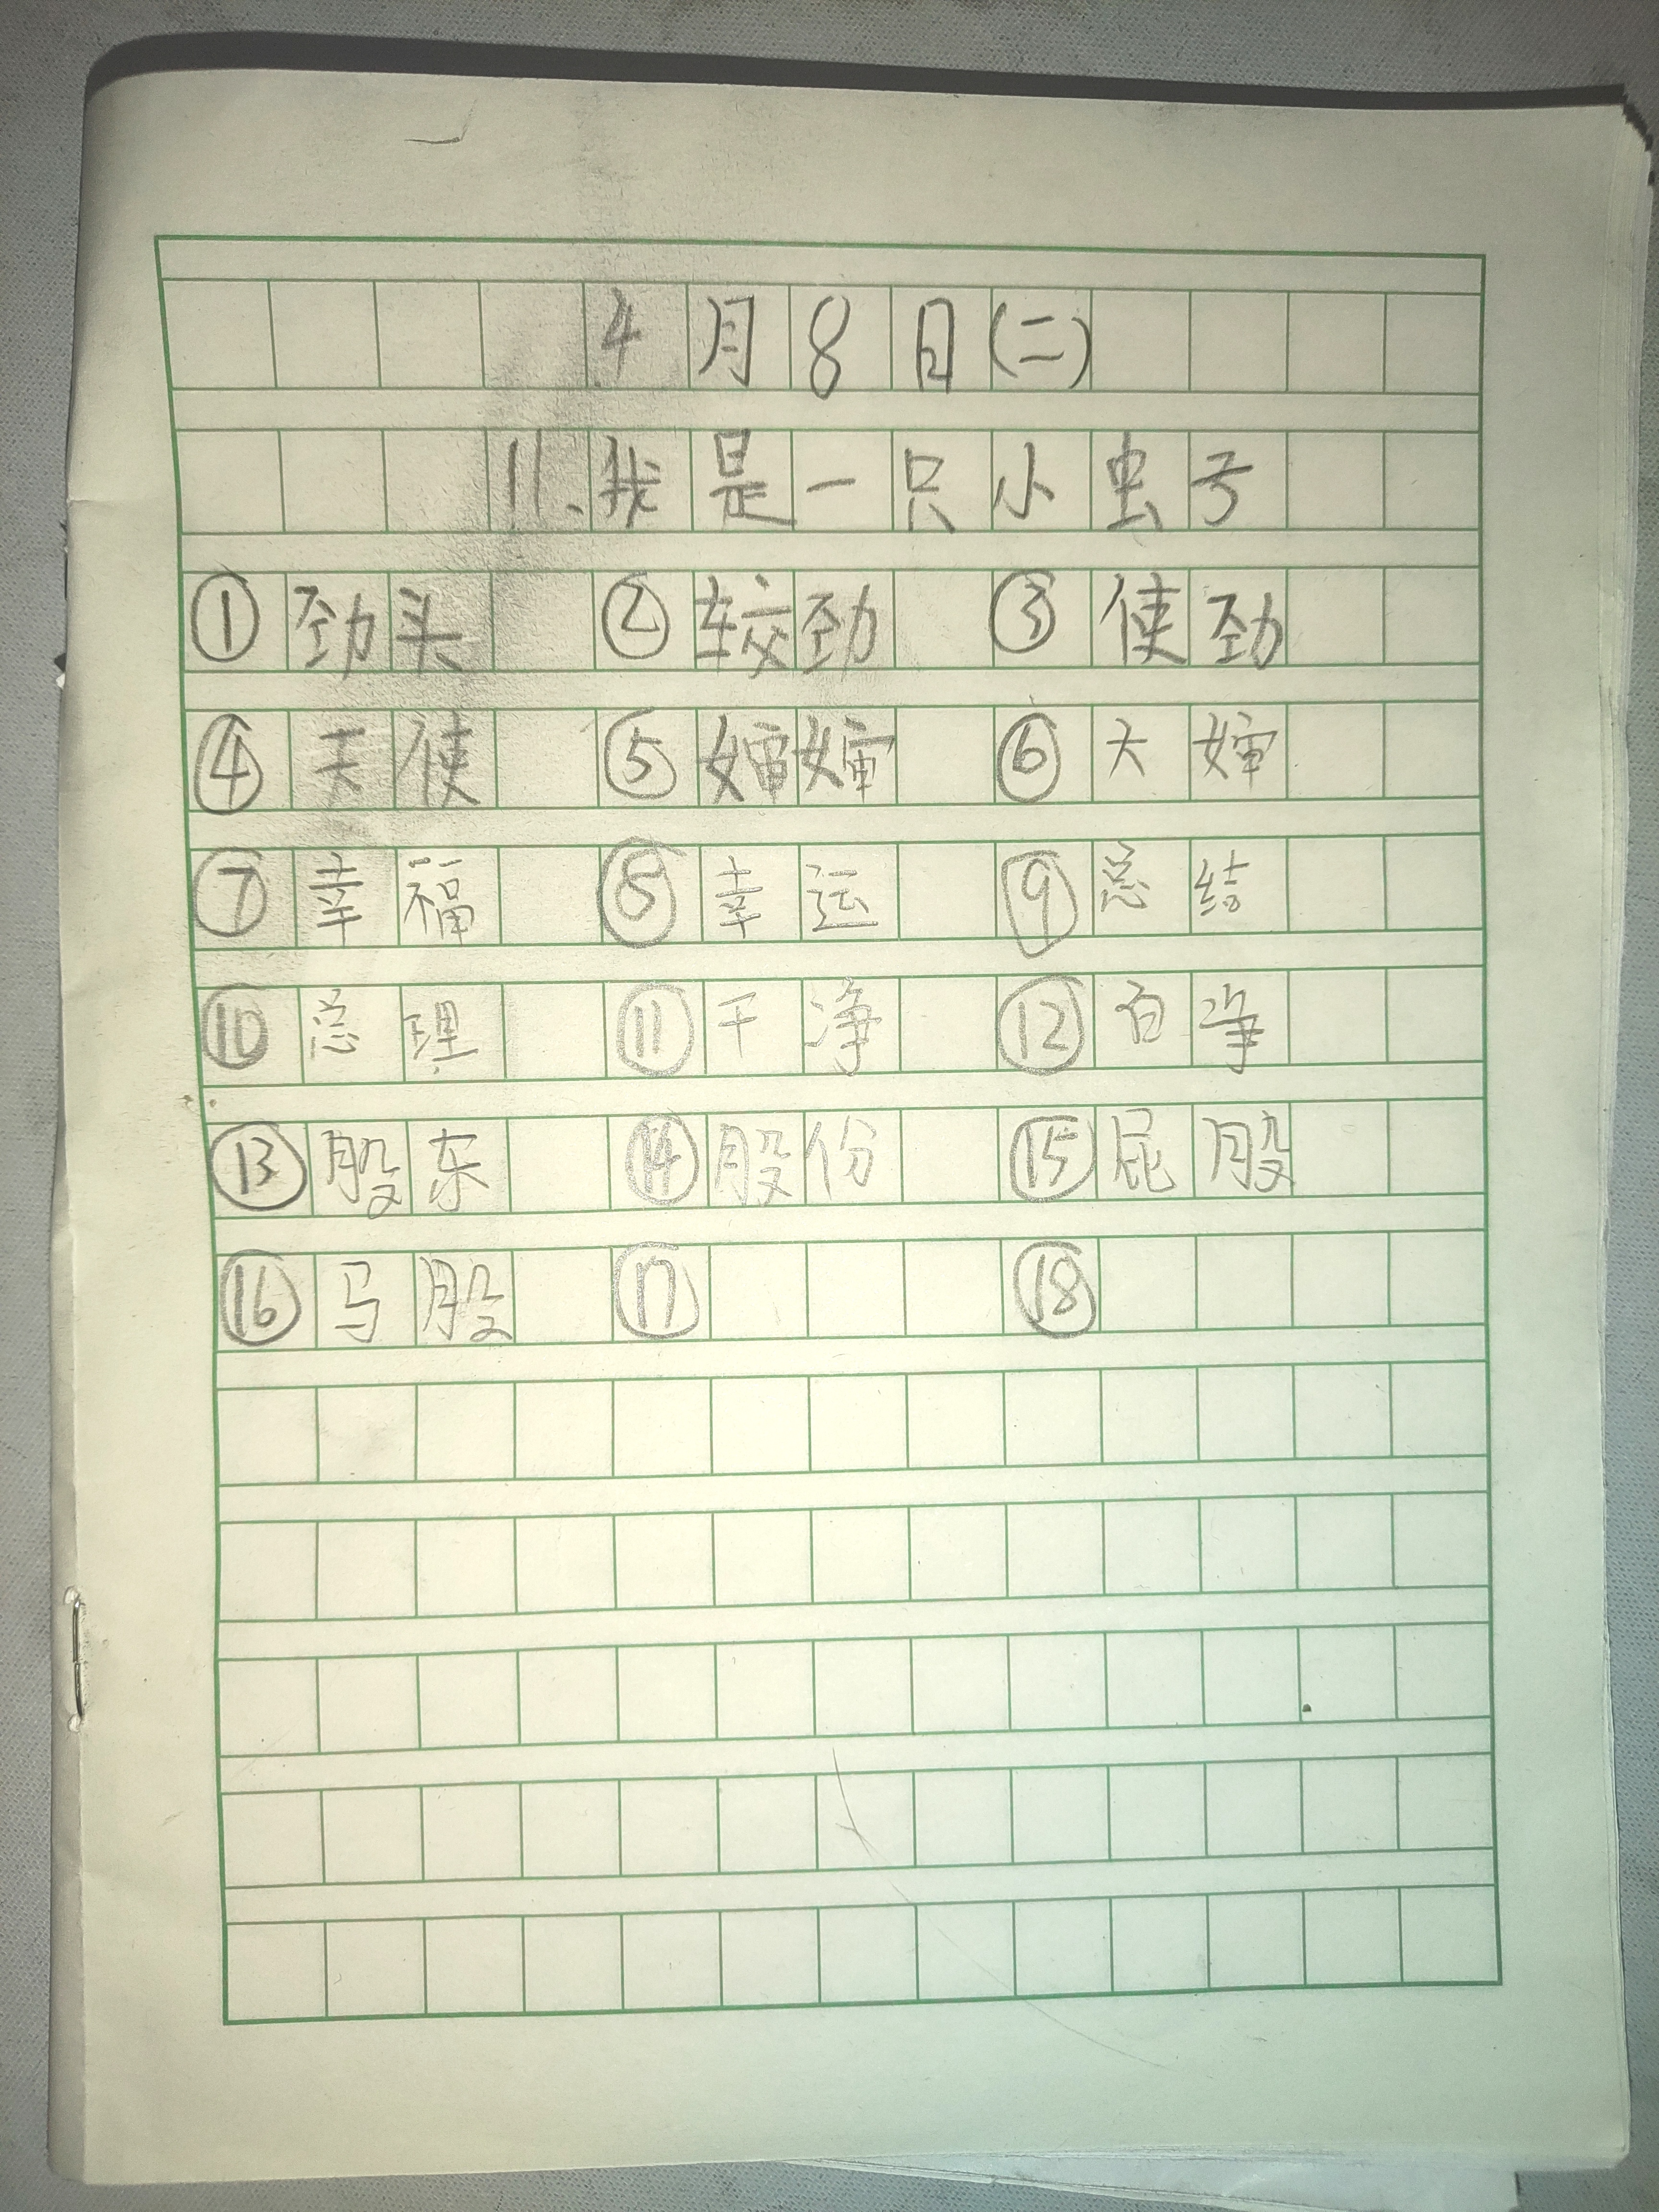 4月8日(二)
11、我是一只小虫子
① 劲头 ② 较劲 ③ 使劲
④ 天使 ⑤ 婶婶 ⑥ 大婶
⑦ 幸福 ⑧ 幸运 ⑨ 总结
⑩ 总理 ⑪ 干净 ⑫ 白净
⑬ 股东 ⑭ 股份 ⑮ 屁股
⑯ 马股 ⑰ ⑱